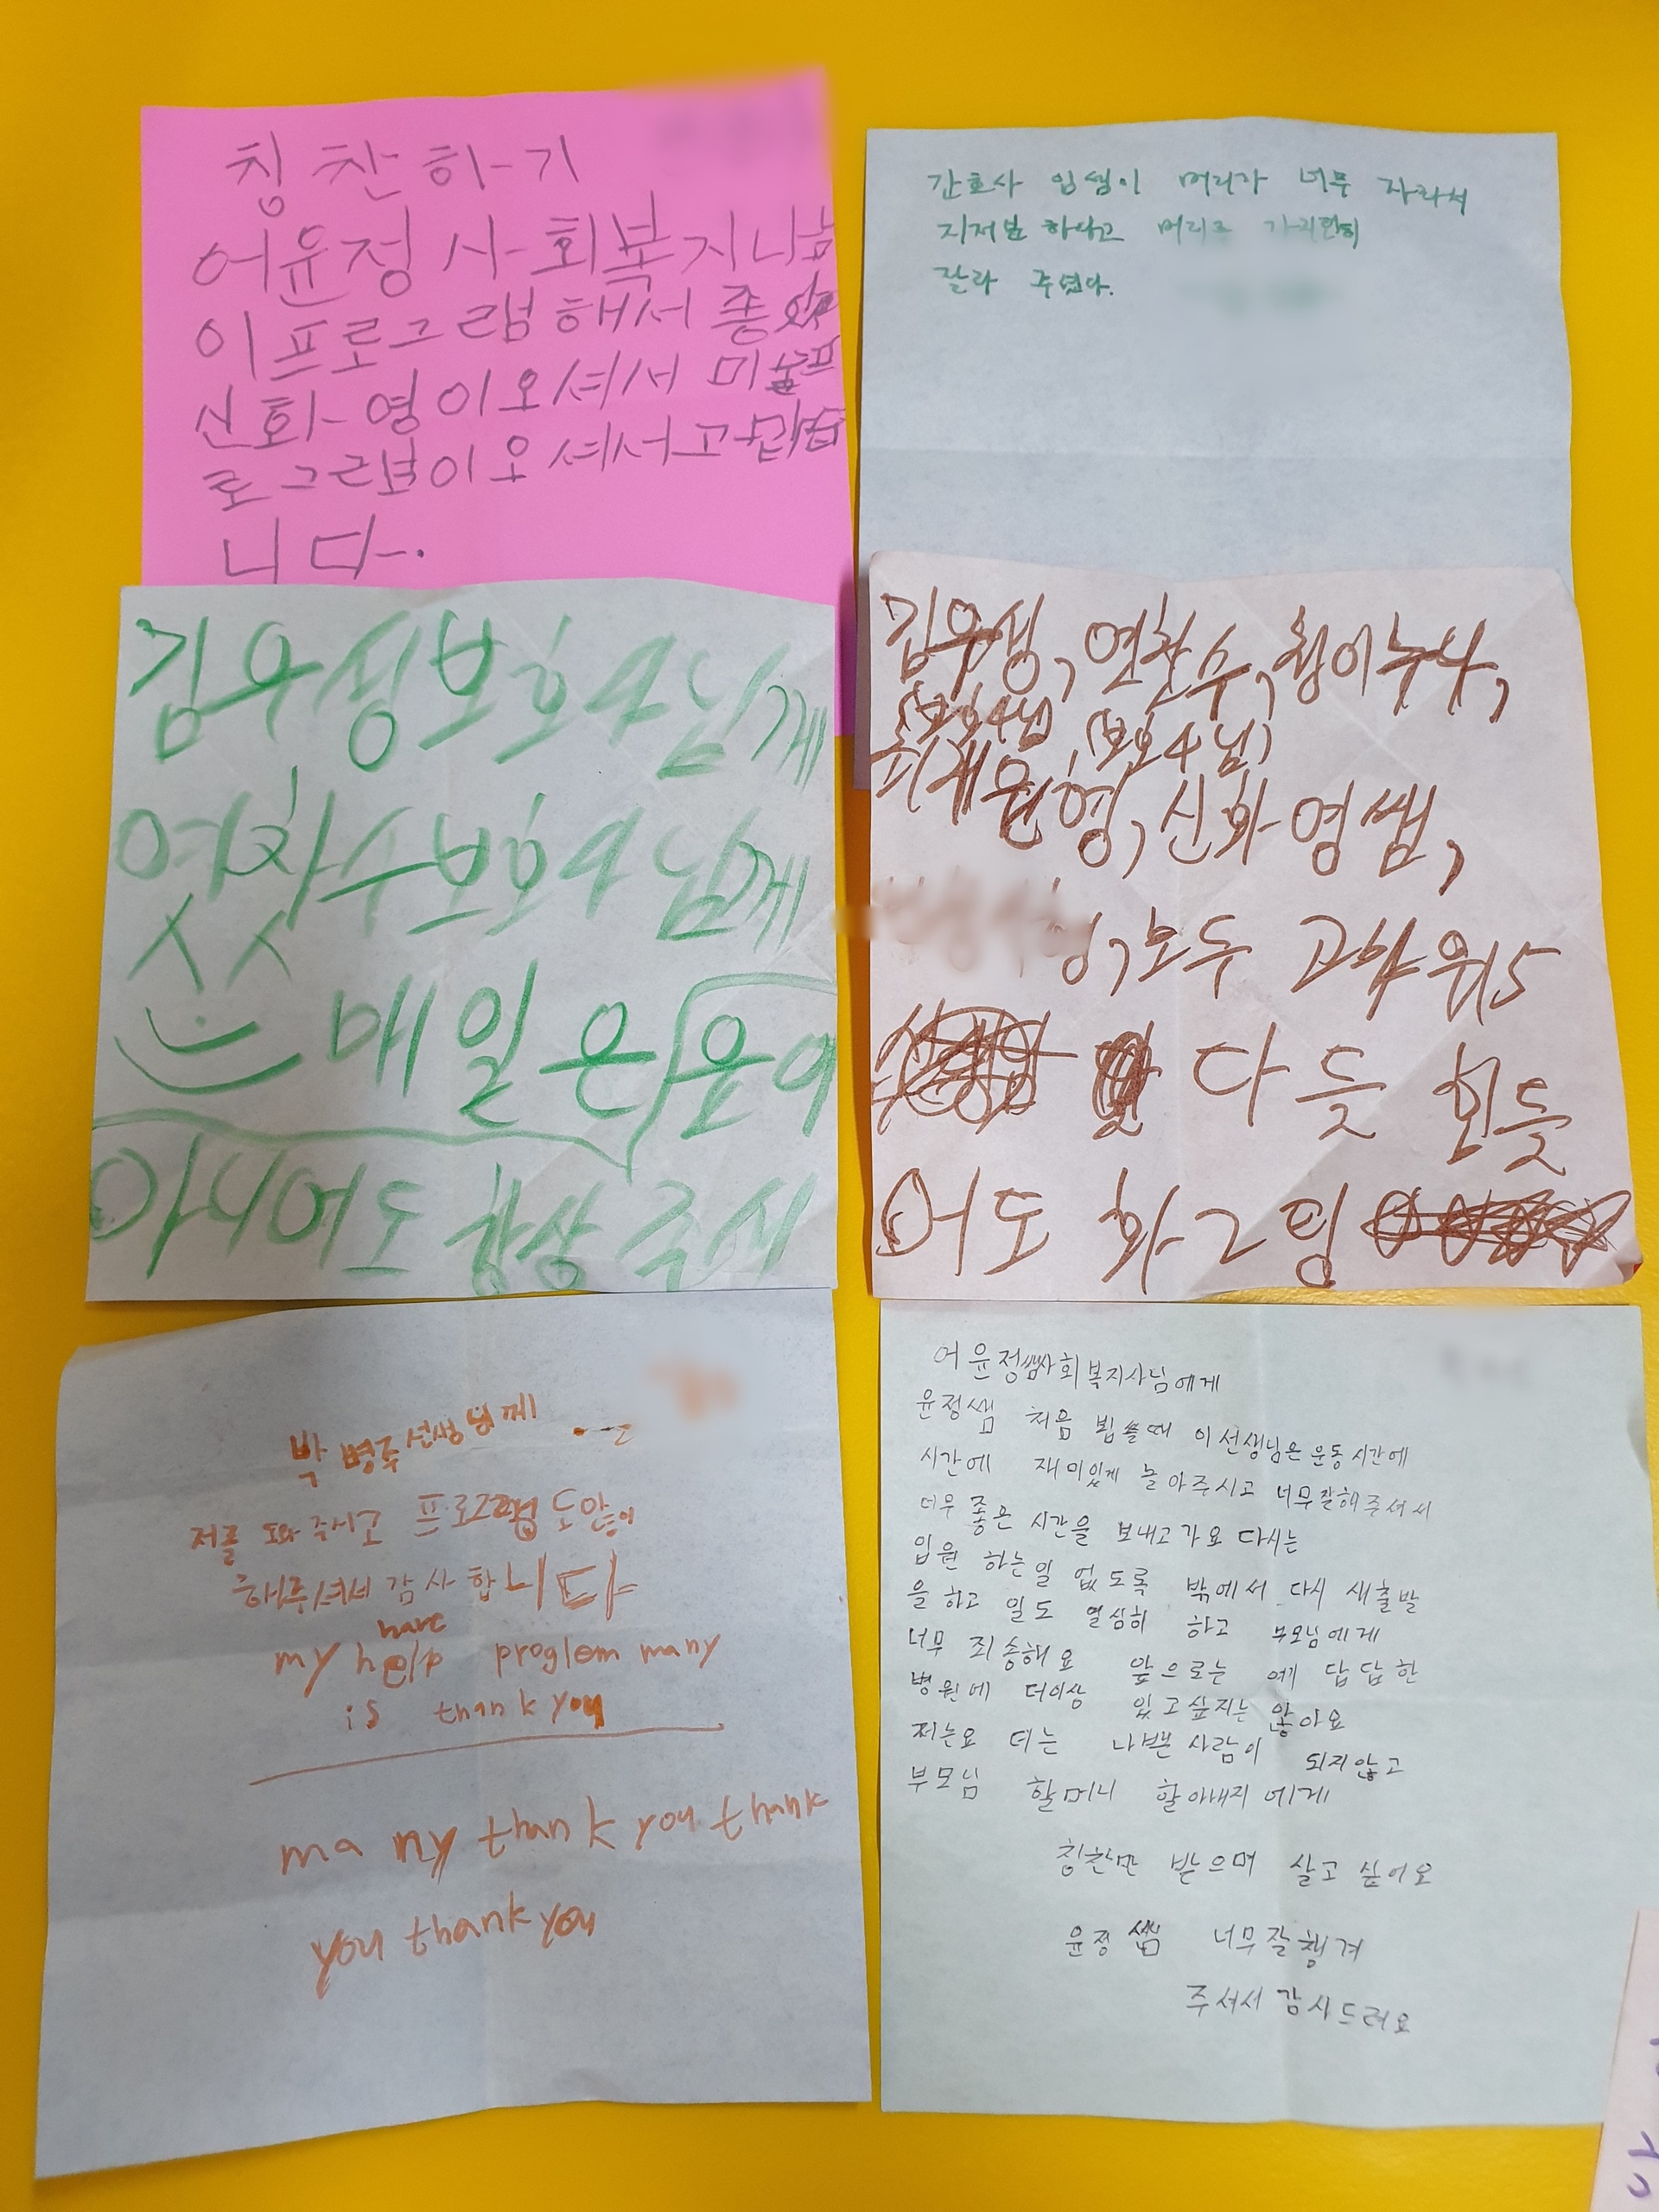 칭찬하기
어윤정 사회복지사님
이프로그램해서 좋았
신화영이오셔서 미술프
로그램이오셔서고맙습
니다.
간호사 임쌤이 머리가 너무 자라서
지저분 하다고 머리를 가지런히
잘라 주셨다.
김우성보호사님께
연찬수보호사님께
매일은 요어
아니어도 항상 주시
김우성, 연찬수, 이누나,
(보호사님) (보호사님)
최재원형, 신화영쌤,
모두 고마워5
다듯 회듯
어도 화그팅
박병주선생님께
저를 도와주시고 프로그램 도많이
해주셔서 감사합니다
have
my help proglem many
is thank you
ma ny thank you thank
you thank you
어윤정쌤사회복지사님에게
윤정쌤 처음 뵙을때 이선생님은 운동시간에
시간에 재미있게 놀아주시고 너무잘해주셔서
너무 좋은 시간을 보내고가요 다시는
입원 하는일 없도록 밖에서 다시 새출발
을하고 일도 열심히 하고 부모님에게
너무 죄송해요 앞으로는 답답한
병원에 더이상 있고싶지는 않아요
저는요 더는 나쁜사람이 되지않고
부모님 할머니 할아버지에게
칭찬만 받으며 살고 싶어요
윤정쌤 너무잘챙겨
주셔서감사드려요